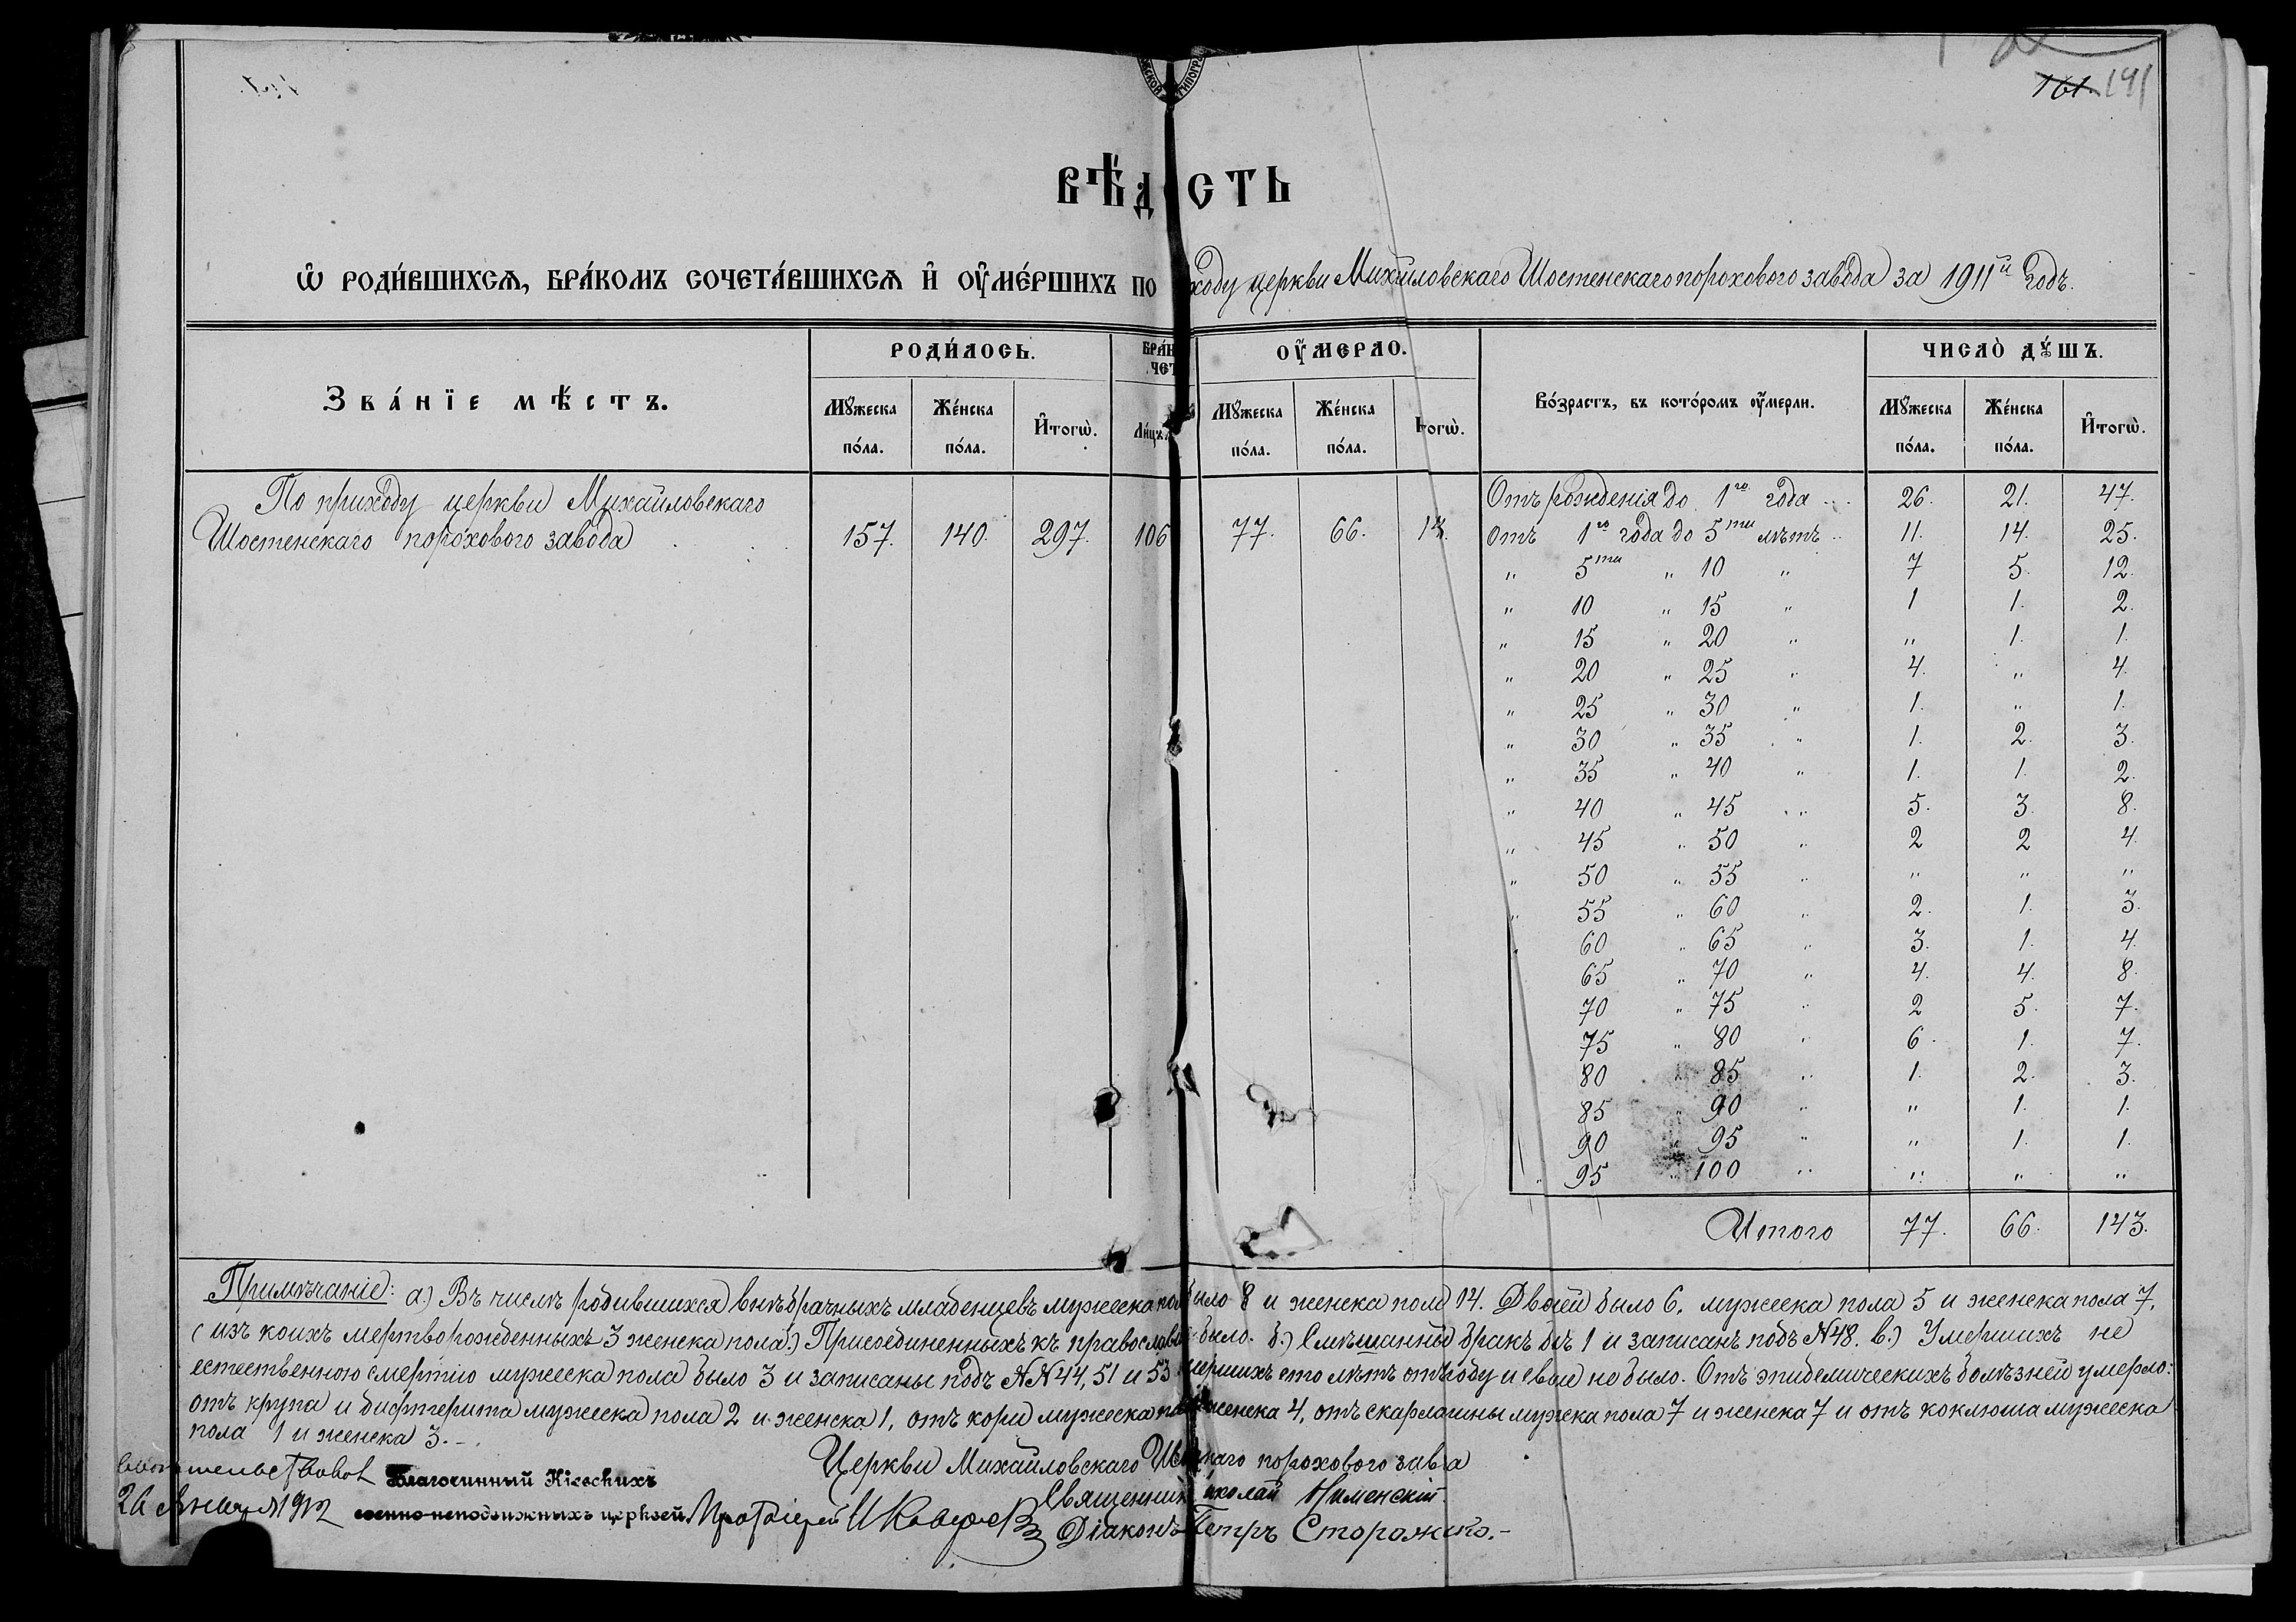 161. 191
ВѢД СТЬ
Ѡ РОДИ́ВШИХСѦ, БРА́КОМЪ СОЧЕТА́ВШИХСѦ И҆ ОУ҆МЕ́РШИХЪ ПО ходу церкви Михайловскаго Шостенскаго порохового завода за 1911й годъ.
Зва́нїе мѣ́стъ.
РОДИ́ЛОСЬ.
Мꙋ́жеска по́ла.
Же́нска по́ла.
И҆тогѡ̀.
ОУ҆́МЕРЛО.
Мꙋ́жеска по́ла.
Же́нска по́ла.
тогѡ̀.
Во́зрастъ, въ кото́ромъ оу҆́мерли.
ЧИСЛО̀ ДꙊ́ШЪ.
Мꙋ́жеска по́ла.
Же́нска по́ла.
И҆тогѡ̀.
По приходу церкви Михайловскаго
Шостенскаго порохового завода 157. 140. 297. 106 77. 66. 14
Отъ рожденія до 1го года 26. 21. 47.
Отъ 1го года до 5ти лѣтъ 11. 14. 25.
„ 5ти „ 10 „ 7 5. 12.
„ 10 „ 15 „ 1 1. 2.
„ 15 „ 20 „ „ 1. 1.
„ 20 „ 25 „ 4. „ 4.
„ 25 „ 30 „ 1. „ 1.
„ 30 „ 35 „ 1. 2. 3.
„ 35 „ 40 „ 1. 1. 2.
„ 40 „ 45 „ 5. 3. 8.
„ 45 „ 50 „ 2 2 4.
„ 50 „ 55 „ „ „ „
„ 55 „ 60 „ 2. 1. 3.
„ 60 „ 65 „ 3. 1. 4.
65 „ 70 „ 4. 4. 8.
70 „ 75 „ 2 5. 7.
75 „ 80 „ 6. 1. 7.
80 „ 85 „ 1. 2. 3.
85 „ 90 „ „ 1. 1.
90 „ 95 „ „ 1. 1.
„ 95 „ 100 „ „ „ „
Итого 77. 66. 143.
Примѣчаніе: а) Въ числѣ родившихся внѣбрачныхъ младенцевъ мужеска пол было 8 и женска пола 14. Двоей было 6, мужеска пола 5 и женска пола 7,
(изъ коихъ мертворожденныхъ 3 женска пола.) Присоединенныхъ къ православ было. б.) Смѣшанный бракъ былъ 1 и записанъ подъ №48. в.) Умершихъ не
естественною смертію мужеска пола было 3 и записаны подъ №№44, 51 и 53 мершихъ сто лѣтъ отъ роду и свыше не было. Отъ эпидемическихъ болѣзней умерло:
отъ крупа и дифтерита мужеска пола 2 и женска 1, отъ кори мужеска по женска 4, отъ скарлатины мужеска пола 7 и женска 7 и отъ коклюша мужеска
пола 1 и женска 3.
Церкви Михайловскаго Шо скаго порохового зав а
Благочинный Кіевскихъ
военно-неподвижныхъ церквей Протоіерей
26 Января 1912
Священник иколай
Діаконъ Петръ Сторожко.